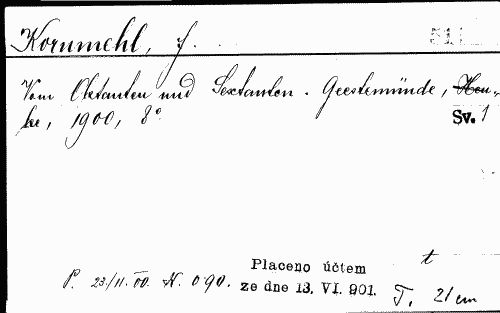 Kornmehl, J.
Vom Oktanten und Sextanten. Geestemünde, Hen-
ke, 1900, 8°
Sv. 1
t
P. 23/11.00. N. 0·90. Placeno účtem
ze dne 13. VI. 901. T. 21 cm